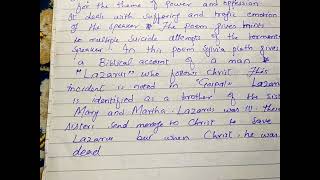 for the theme of Power and oppression
It deals with suffering and tragic emotion
of the speaker * The Poem gives hints
to multiple Suicide attempts of the torments
Speaker. In this poem Sylvia plath gives
a Biblical account of a man
"Lazarus" who Christ This
incident is noted in Lazarus
is identified as a brother of the Sist
Mary and Martha. Lazarus was ill thei
sisters send message to Christ to save
Lazarus but when Christ, he was
dead